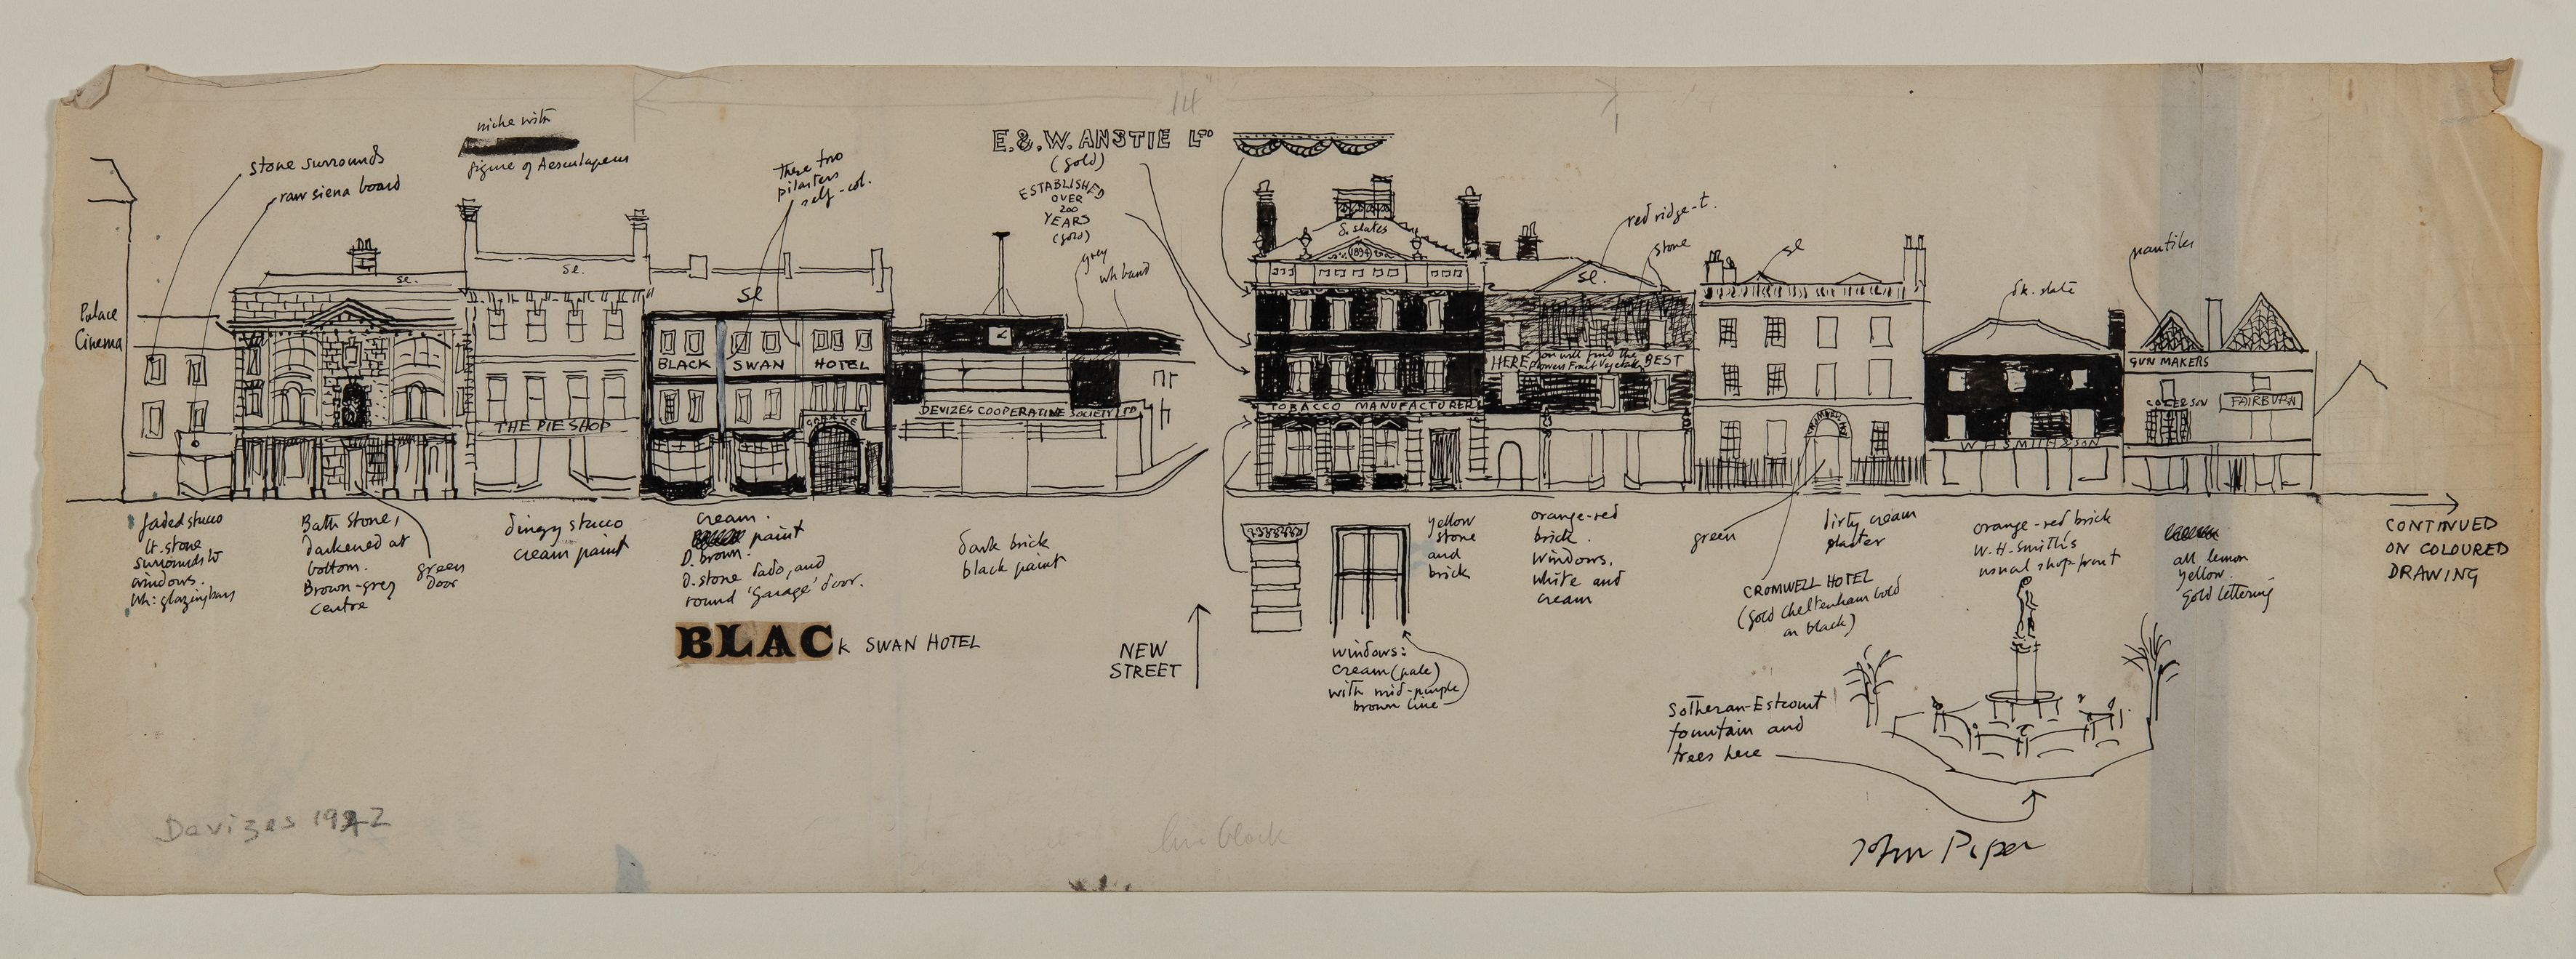 14"
niche with
figure of Aesculapeus
stone surrounds
raw siena board
These two
pilasters
self-col.
E.&.W. ANSTIE LTD
(gold)
ESTABLISHED
OVER
200
YEARS
(gold)
grey
wh band
red ridge-t.
stone
sl
dk. slate
pantiles
Palace
Cinema
sl.
sl.
sl
d. slates
1894
sl.
BLACK SWAN HOTEL
GARAGE
THE PIE SHOP
DEVIZES COOPERATIVE SOCIETY LTD
TOBACCO MANUFACTURERS
HERE you will find the BEST
Flowers Fruit Vegetables
CROMWELL HOTEL
W H SMITH & SON
GUN MAKERS
FAIRBURN
faded stucco
lt. stone
surrounds to
windows.
Wh: glazing bars
Bath Stone,
darkened at
bottom.
Brown-grey
centre
green
door
dingy stucco
cream paint
cream.
paint
D. brown.
D. stone dado, and
round 'garage' door.
dark brick
black paint
BLACk SWAN HOTEL
NEW
STREET
yellow
stone
and
brick
windows:
cream (pale)
with mid-purple
brown line
orange-red
brick.
windows,
white and
cream
green
dirty cream
plaster
CROMWELL HOTEL
(gold Cheltenham bold
on black)
orange-red brick
W.H. Smith's
usual shop-front
all lemon
yellow.
gold lettering
CONTINUED
ON COLOURED
DRAWING
Sotheran-Estcourt
fountain and
trees here
Devizes 1942
line block
John Piper